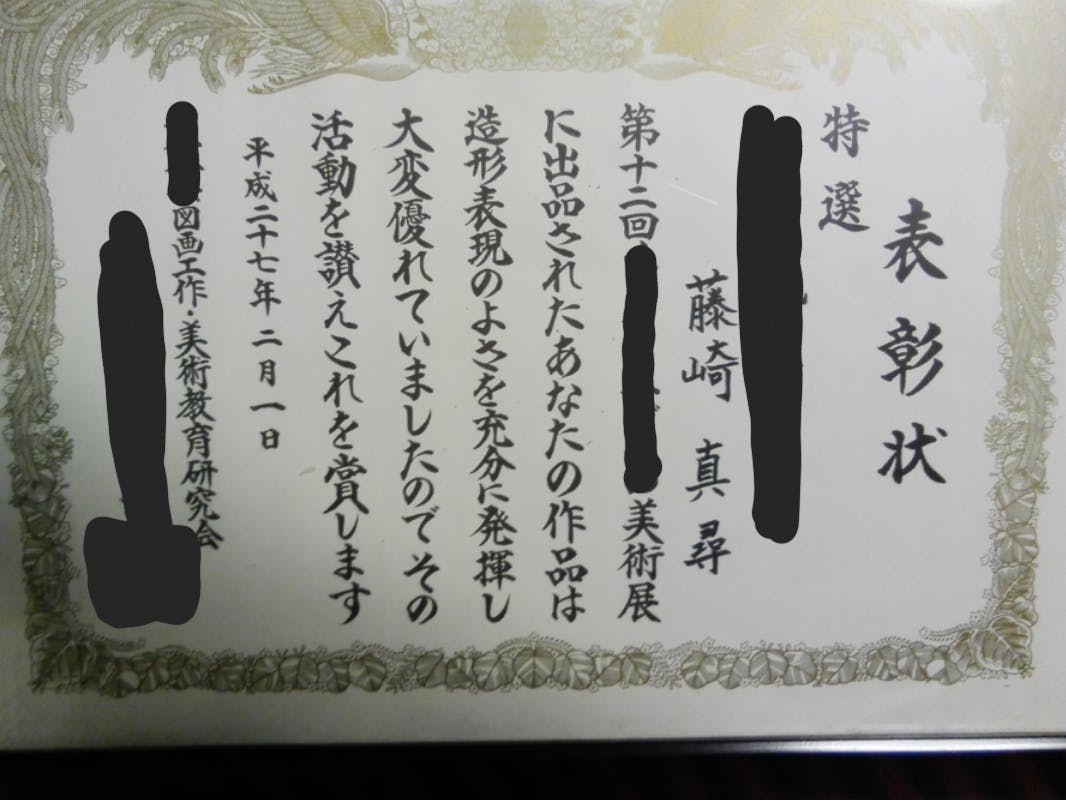 表彰状
特選
藤崎 真尋
第十二回 美術展
に出品されたあなたの作品は
造形表現のよさを充分に発揮し
大変優れていましたのでその
活動を讃えこれを賞します
平成二十七年二月一日
図画工作・美術教育研究会